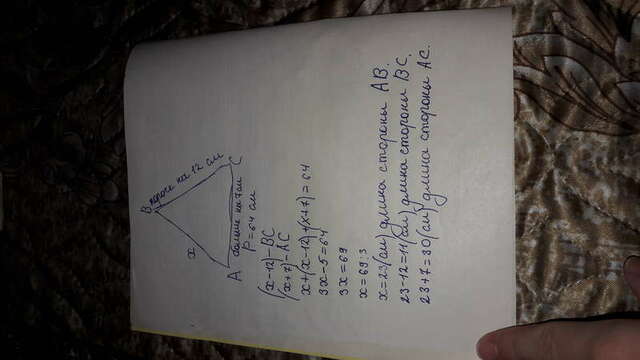 B
короче на 12 см
x
C
A
больше на 7 см
P = 64 см
(x-12)-BC
(x+7)-AC
x+(x-12)+(x+7)=64
3x-5=64
3x=69
x=69:3
x=23(см) длина стороны AB.
23-12=11(см) длина стороны BC.
23+7=30(см) длина стороны AC.